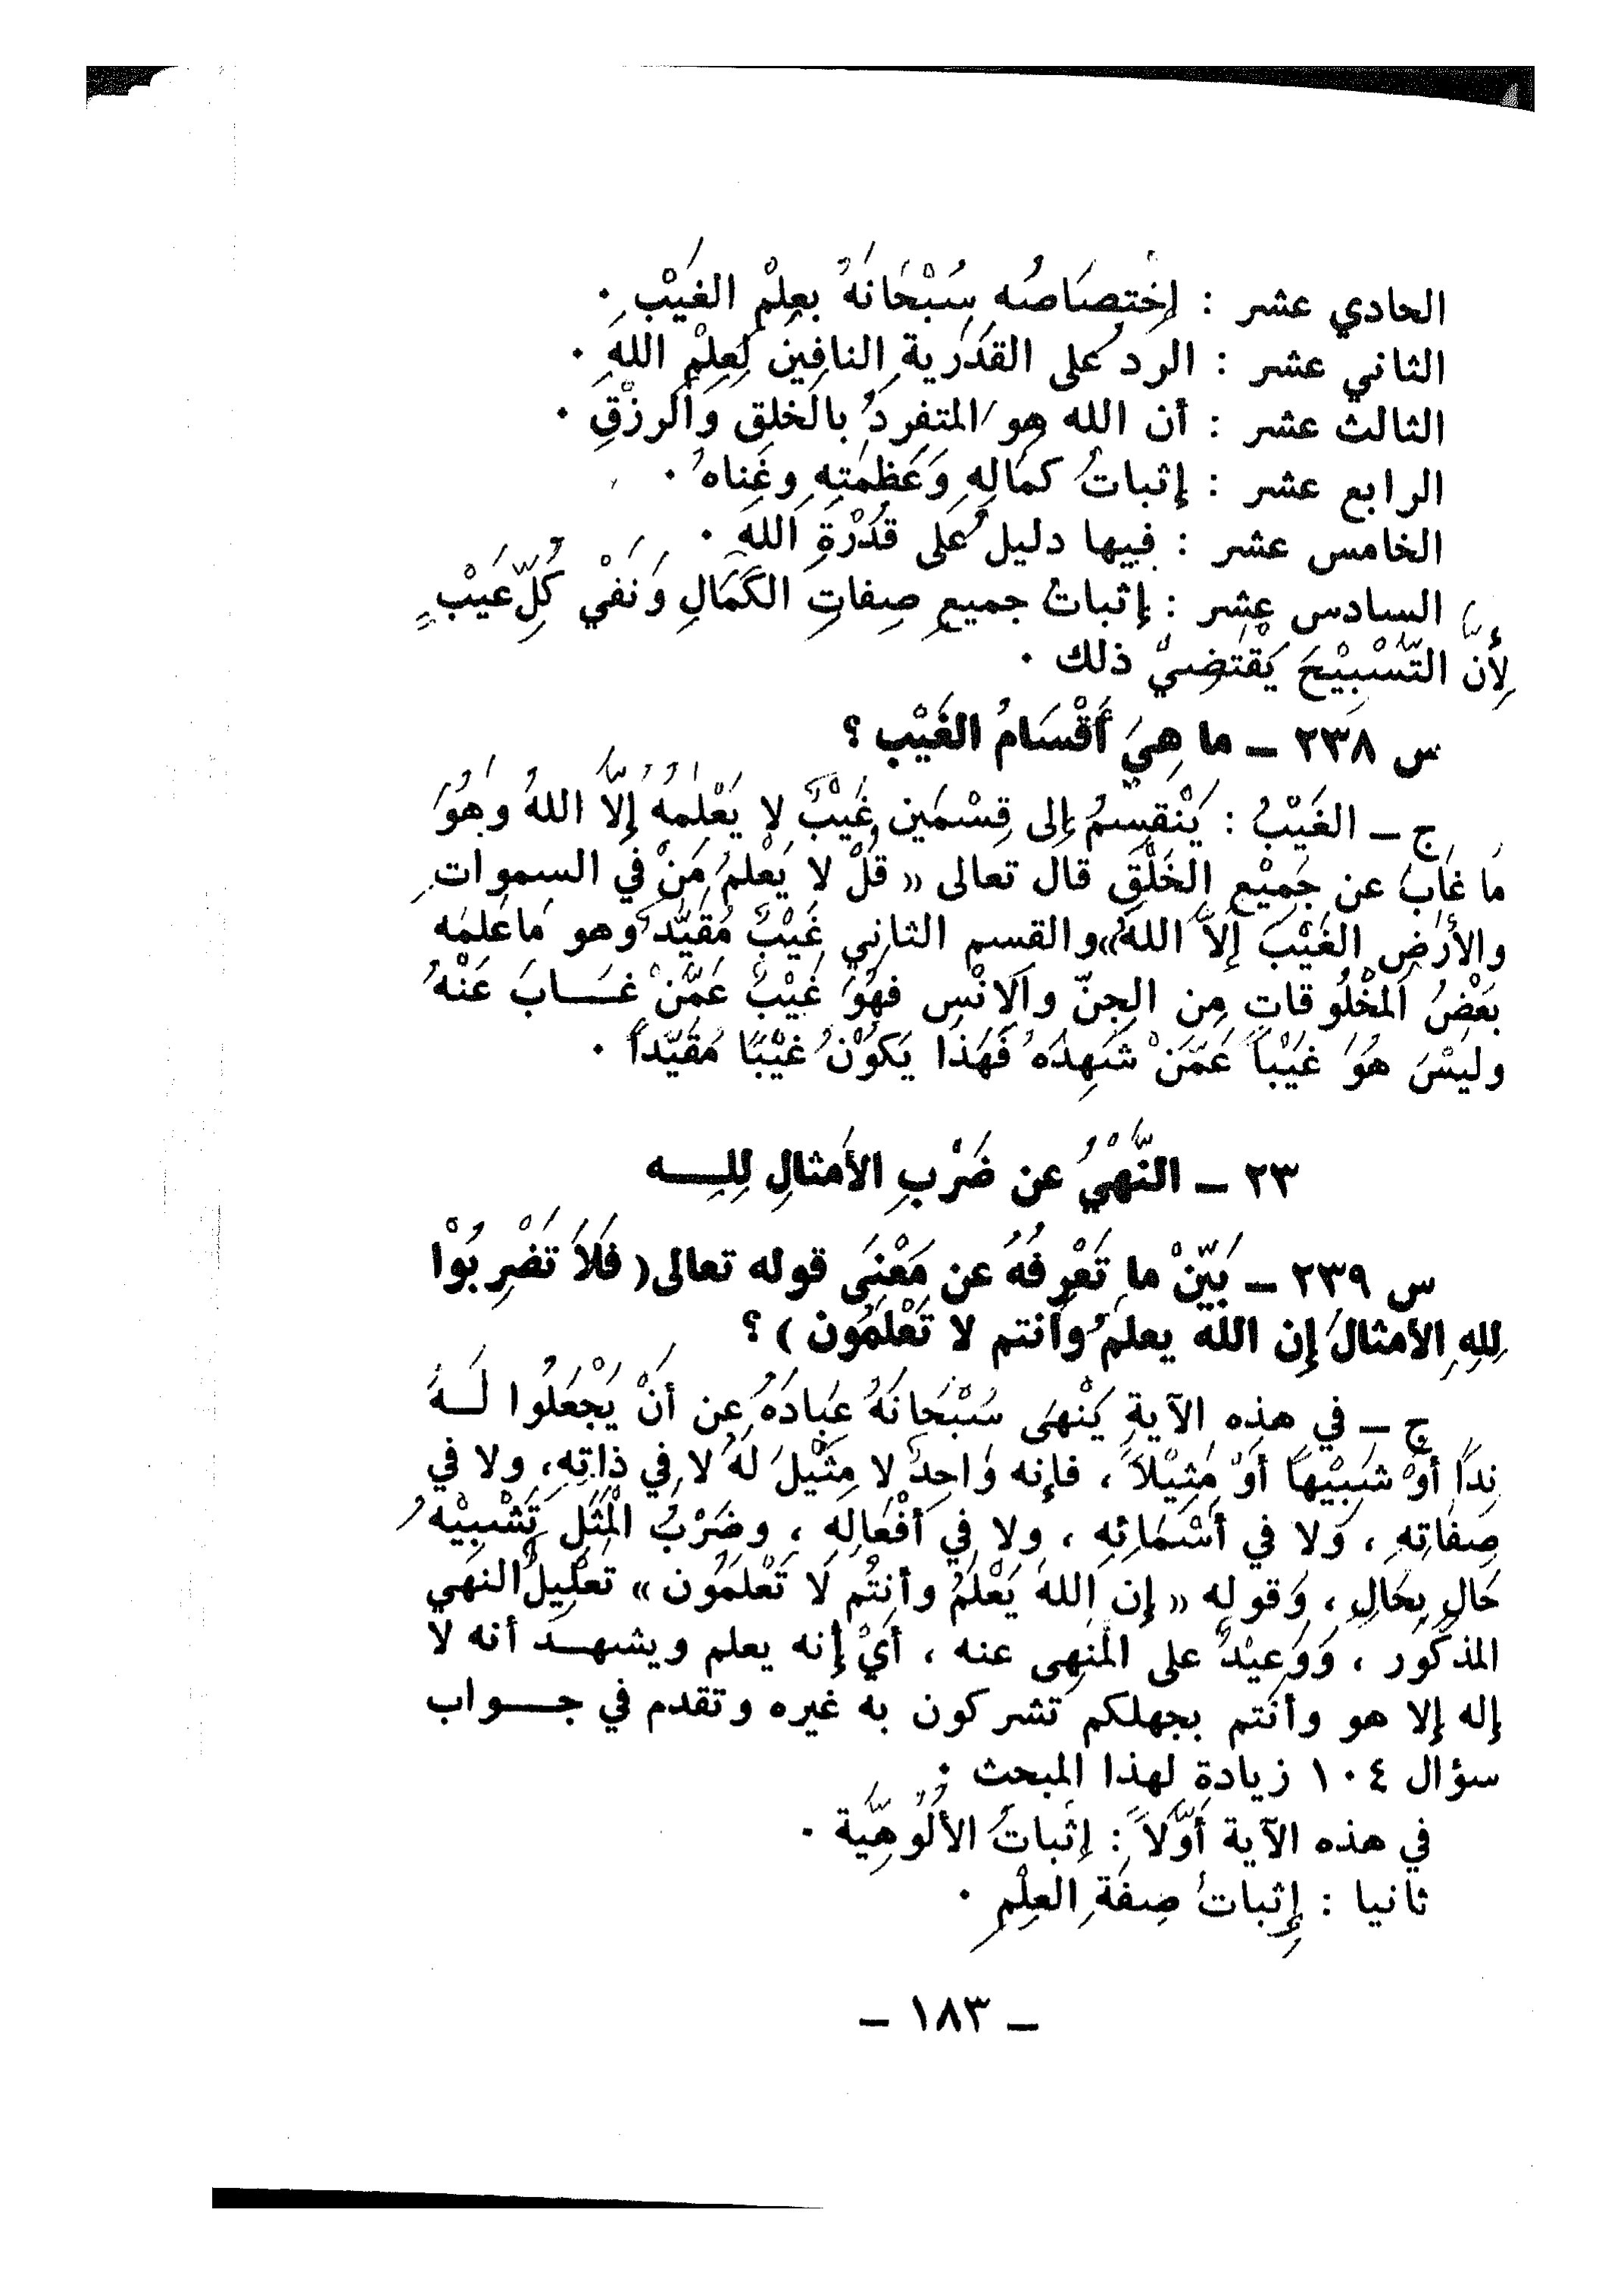 الحادي عشر : إخْتصَاصُه سُبْحَانَهُ بعِلْمِ الغَيْبِ .
الثاني عشر : الردُ على القَدَرية النافِينَ لِعِلْمِ اللهِ .
الثالث عشر : أن الله هو المتفردُ بالخلقِ والرِزْقِ .
الرابع عشر : إثباتُ كمَالِهِ وَعَظمَتِهِ وغِناهُ .
الخامس عشر : فيها دليلٌ على قُدْرَةِ اللهِ .
السادس عشر : إثباتُ جميعِ صِفاتِ الكَمَالِ وَنَفْي كُلِّ عَيْبٍ
لِأَنَّ التَّسْبِيْحَ يَقْتَضِيْ ذلك .
س ٢٣٨ – ما هِيَ أَقْسَامُ الغَيْبِ ؟
ج – الغَيْبُ : يَنْقَسِمُ إلى قِسْمَين غَيْبٌ لا يَعْلَمُهُ إلَّا اللهُ وهُوَ
مَا غَابَ عن جَمِيْعِ الخَلْقِ قال تعالى « قُلْ لا يَعْلَمُ مَنْ في السموات
والأَرْضِ الغَيْبَ إلَّا اللهُ» والقسم الثاني غَيْبٌ مُقَيَّدٌ وهو مَا عَلِمَه
بَعْضُ المَخْلُوقاتِ مِن الجِنِّ والإنْسِ فهُوَ غَيْبٌ عَمَّنْ غَـابَ عَنْهُ
ولَيْسَ هُوَ غَيْباً عَمَّنْ شَهِدَهُ فَهَذا يَكُوْنُ غَيْبًا مُقَيَّداً .
٢٣ – النَّهْيُ عن ضَرْبِ الأَمثالِ لِلِـه
س ٢٣٩ – بَيِّنْ ما تَعْرِفُهُ عن مَعْنَى قوله تعالى ( فَلَا تَضْرِبُوْا
لِلهِ الأمثالَ إن اللهَ يعلمُ وأَنتم لا تَعْلَمُون ) ؟
ج – في هذه الآيةِ يَنْهَى سُبْحَانَهُ عِبادَهُ عن أَنْ يَجْعَلُوا لَـهُ
نِداً أوْ شَبِيْهاً أوْ مَثِيْلاً ، فإنه وَاحِدٌ لا مِثْيلَ لَهُ لا في ذاتِهِ، ولا في
صِفَاتِهِ ، ولا في أَسْمَائِه ، ولا في أَفْعَالِهِ ، وضَرْبُ المَثَلِ تَشْبِيْهُ
حَالٍ بِحَالٍ ، وَقوله « إن اللهَ يَعْلَمُ وأنتُم لَا تَعْلَمُون » تَعْلِيلٌ النهي
المذكور ، وَوَعِيْدٌ على المَنهِى عنه ، أَيْ إنه يعلم ويشهـد أنه لا
إله إلا هو وأنتم بجهلكم تشركون به غيره وتقدم في جـواب
سؤال ١٠٤ زيادة لهذا المبحث .
في هذه الآية أَوَّلاً : إثْباتُ الأُلُوهِيَّة .
ثانيا : إثباتُ صِفَةِ العِلْمِ .
– ١٨٣ –